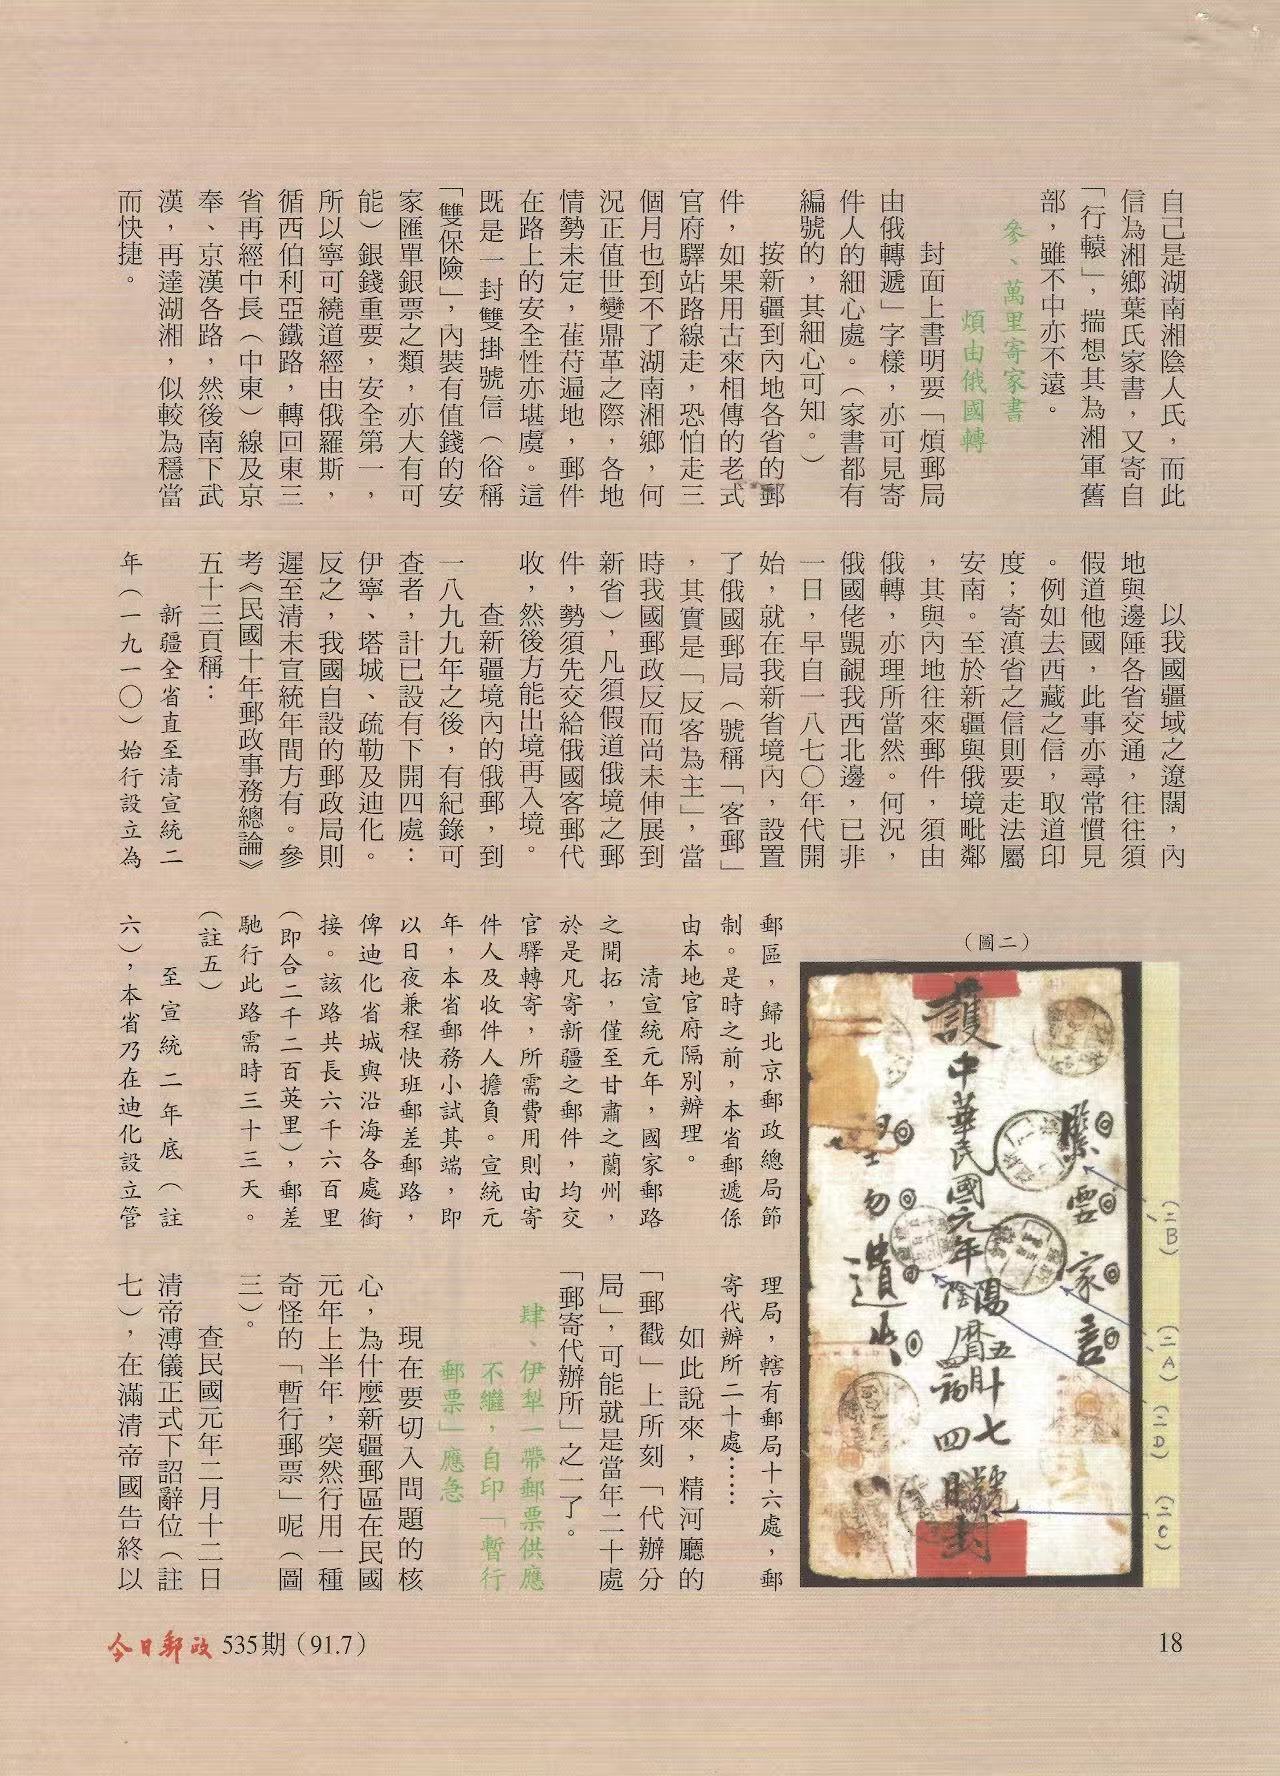 自己是湖南湘陰人氏，而此
信為湘鄉葉氏家書，又寄自
「行轅」，揣想其為湘軍舊
部，雖不中亦不遠。
參、萬里寄家書
煩由俄國轉
封面上書明要「煩郵局
由俄轉遞」字樣，亦可見寄
件人的細心處。（家書都有
編號的，其細心可知。）
按新疆到內地各省的郵
件，如果用古來相傳的老式
官府驛站路線走，恐怕走三
個月也到不了湖南湘鄉，何
況正值世變鼎革之際，各地
情勢未定，萑苻遍地，郵件
在路上的安全性亦堪虞。這
既是一封雙掛號信（俗稱
「雙保險」，內裝有值錢的安
家匯單銀票之類，亦大有可
能）銀錢重要，安全第一，
所以寧可繞道經由俄羅斯，
循西伯利亞鐵路，轉回東三
省再經中長（中東）線及京
奉、京漢各路，然後南下武
漢，再達湖湘，似較為穩當
而快捷。
以我國疆域之遼闊，內
地與邊陲各省交通，往往須
假道他國，此事亦尋常慣見
。例如去西藏之信，取道印
度；寄滇省之信則要走法屬
安南。至於新疆與俄境毗鄰
，其與內地往來郵件，須由
俄轉，亦理所當然。何況，
俄國佬覬覦我西北邊，已非
一日，早自一八七〇年代開
始，就在我新省境內，設置
了俄國郵局（號稱「客郵」
，其實是「反客為主」，當
時我國郵政反而尚未伸展到
新省），凡須假道俄境之郵
件，勢須先交給俄國客郵代
收，然後方能出境再入境。
查新疆境內的俄郵，到
一八九九年之後，有紀錄可
查者，計已設有下開四處：
伊寧、塔城、疏勒及迪化。
反之，我國自設的郵政局則
遲至清末宣統年間方有。參
考《民國十年郵政事務總論》
五十三頁稱：
新疆全省直至清宣統二
年（一九一〇）始行設立為
郵區，歸北京郵政總局節
制。是時之前，本省郵遞係
由本地官府隔別辦理。
清宣統元年，國家郵路
之開拓，僅至甘肅之蘭州，
於是凡寄新疆之郵件，均交
官驛轉寄，所需費用則由寄
件人及收件人擔負。宣統元
年，本省郵務小試其端，即
以日夜兼程快班郵差郵路，
俾迪化省城與沿海各處銜
接。該路共長六千六百里
（即合二千二百英里），郵差
馳行此路需時三十三天。
（註五）
至宣統二年底（註
六），本省乃在迪化設立管
理局，轄有郵局十六處，郵
寄代辦所二十處……
如此說來，精河廳的
「郵戳」上所刻「代辦分
局」，可能就是當年二十處
「郵寄代辦所」之一了。
肆、伊犁一帶郵票供應
不繼，自印「暫行
郵票」應急
現在要切入問題的核
心，為什麼新疆郵區在民國
元年上半年，突然行用一種
奇怪的「暫行郵票」呢（圖
三）。
查民國元年二月十二日
清帝溥儀正式下詔辭位（註
七），在滿清帝國告終以
（圖二）
護
中華民國元年
陽
陰
曆
五月十七
初四日封
號
雲家言
勿遺
(二B)
(二A)
(二D)
(二C)
今日郵政 535期（91.7）
18